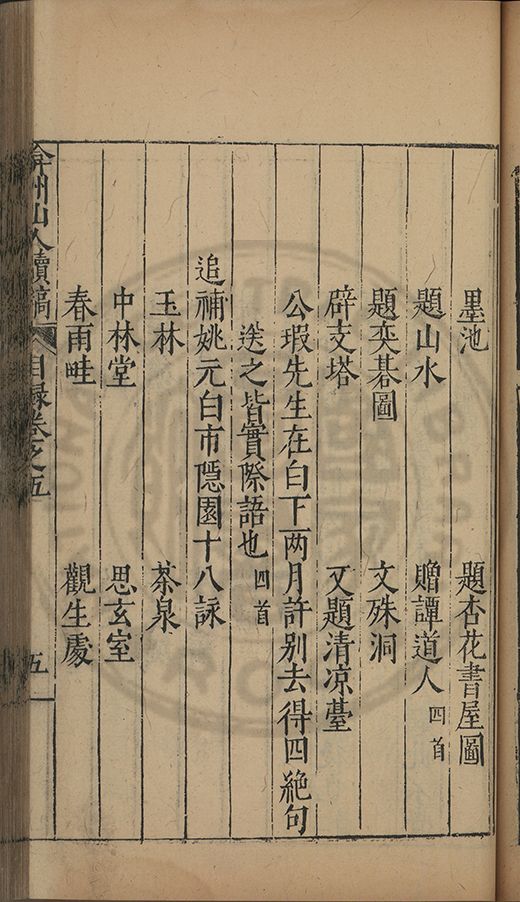 墨池　題杏花書屋圖
題山水　贈譚道人四首
題奕碁圖　文殊洞
辟支塔　又題清凉臺
公瑕先生在白下两月許别去得四絶句
送之皆實際語也四首
追補姚元白市隱園十八詠
玉林　茶泉
中林堂　思玄室
春雨畦　觀生處
弇州山人續稿　目録卷之五　五